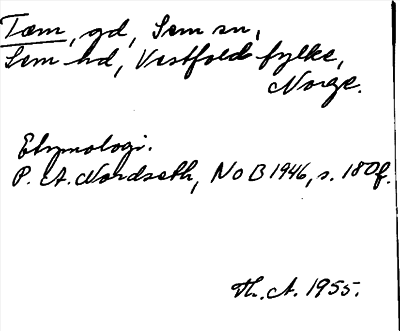 Tæm, gd, Sem sn,
Sem hd, Vestfold fylke,
Norge.
Etymologi.
P. A. Nordseth, NoB 1946, s. 180f.
Th. A. 1955.